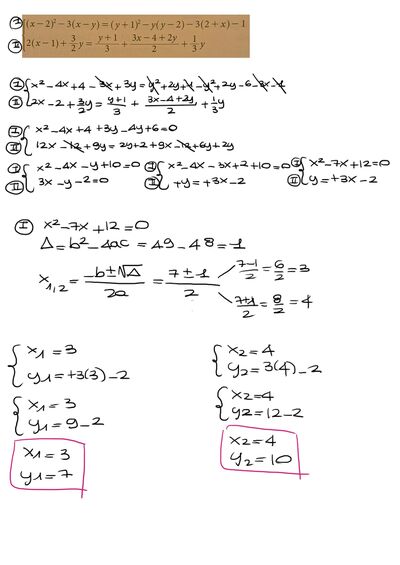 ③ (x-2)²-3(x-y)=(y+1)²-y(y-2)-3(2+x)-1
Ⅱ 2(x-1)+3/2 y = (y+1)/3 + (3x-4+2y)/2 + 1/3 y
Ⅰ x²-4x+4-3x+3y=y²+2y+1-y²+2y-6-3x-1
Ⅱ 2x-2+3/2 y = (y+1)/3 + (3x-4+2y)/2 + 1/3 y
Ⅰ x²-4x+4+3y-4y+6=0
Ⅱ 12x-12+9y=2y+2+9x-12+6y+2y
Ⅰ x²-4x-y+10=0 Ⅰ x²-4x-3x+2+10=0 Ⅰ x²-7x+12=0
Ⅱ 3x-y-2=0 Ⅱ +y=+3x-2 Ⅱ y=+3x-2
Ⅰ x²-7x+12=0
Δ=b²-4ac=49-48=1
x1,2 = (-b±√Δ)/2a = (7±1)/2
(7-1)/2 = 6/2 = 3
(7+1)/2 = 8/2 = 4
x1=3
y1=+3(3)-2
x1=3
y1=9-2
x1=3
y1=7
x2=4
y2=3(4)-2
x2=4
y2=12-2
x2=4
y2=10